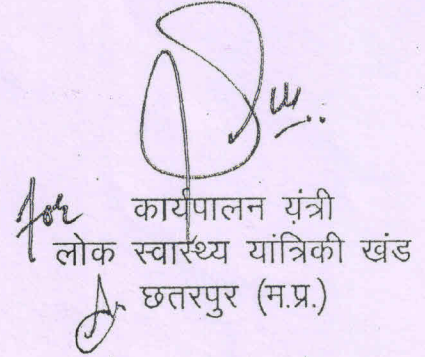 for कार्यपालन यंत्री
लोक स्वास्थ्य यांत्रिकी खंड
छतरपुर (म.प्र.)